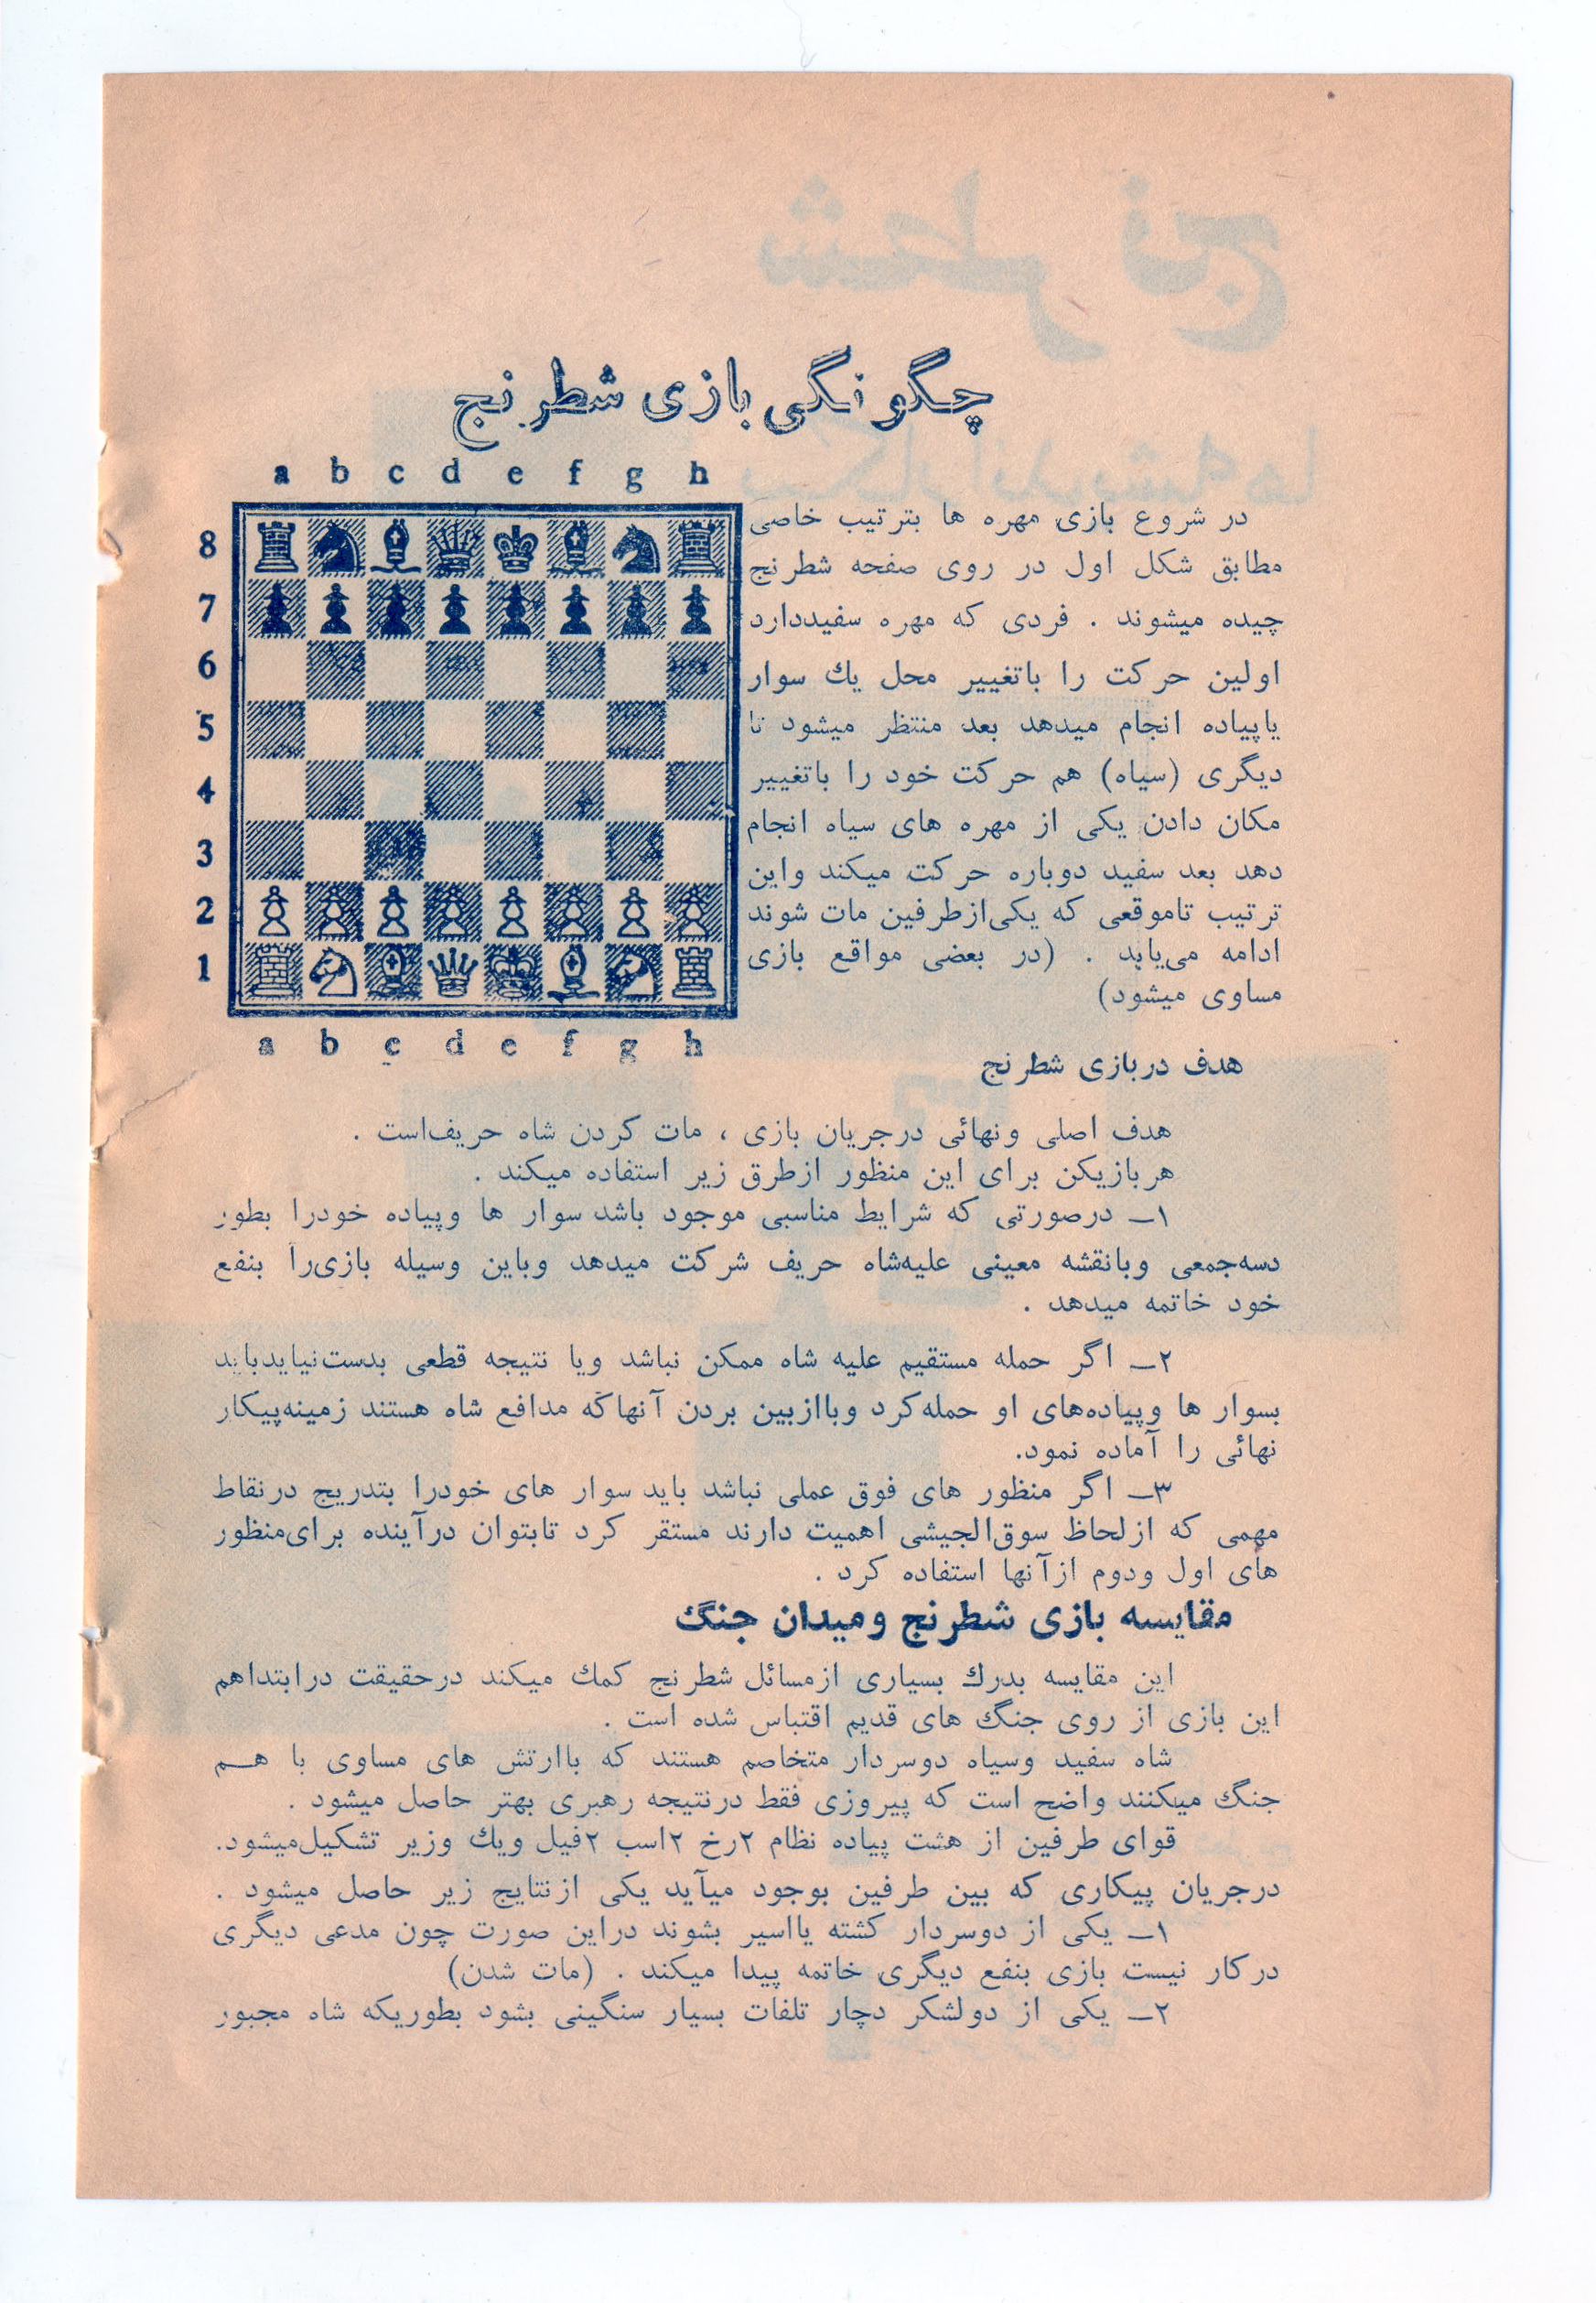 چگونگی بازی شطرنج
a b c d e f g h
8
7
6
5
4
3
2
1
a b c d e f g h
در شروع بازی مهره ها بترتیب خاصی
مطابق شکل اول در روی صفحه شطرنج
چیده میشوند . فردی که مهره سفیددارد
اولین حرکت را باتغییر محل یك سوار
یاپیاده انجام میدهد بعد منتظر میشود تا
دیگری (سیاه) هم حرکت خود را باتغییر
مکان دادن یکی از مهره های سیاه انجام
دهد بعد سفید دوباره حرکت میکند واین
ترتیب تاموقعی که یکی‌ازطرفین مات شوند
ادامه می‌یابد . (در بعضی مواقع بازی
مساوی میشود)
هدف دربازی شطرنج
هدف اصلی ونهائی درجریان بازی ، مات کردن شاه حریف‌است .
هربازیکن برای این منظور ازطرق زیر استفاده میکند .
۱ــ درصورتی که شرایط مناسبی موجود باشد سوار ها وپیاده خودرا بطور
دسه‌جمعی وبانقشه معینی علیه‌شاه حریف شرکت میدهد وباین وسیله بازی‌را بنفع
خود خاتمه میدهد .
۲ــ اگر حمله مستقیم علیه شاه ممکن نباشد ویا نتیجه قطعی بدست‌نیایدباید
بسوار ها وپیاده‌های او حمله‌کرد وباازبین بردن آنهاکه مدافع شاه هستند زمینه‌پیکار
نهائی را آماده نمود.
۳ــ اگر منظور های فوق عملی نباشد باید سوار های خودرا بتدریج درنقاط
مهمی که ازلحاظ سوق‌الجیشی اهمیت دارند مستقر کرد تابتوان درآینده برای‌منظور
های اول ودوم ازآنها استفاده کرد .
مقایسه بازی شطرنج ومیدان جنگ
این مقایسه بدرك بسیاری ازمسائل شطرنج کمك میکند درحقیقت درابتداهم
این بازی از روی جنگ های قدیم اقتباس شده است .
شاه سفید وسیاه دوسردار متخاصم هستند که باارتش های مساوی با هــم
جنگ میکنند واضح است که پیروزی فقط درنتیجه رهبری بهتر حاصل میشود .
قوای طرفین از هشت پیاده نظام ۲رخ ۲اسب ۲فیل ویك وزیر تشکیل‌میشود.
درجریان پیکاری که بین طرفین بوجود میآید یکی ازنتایج زیر حاصل میشود .
۱ــ یکی از دوسردار کشته یااسیر بشوند دراین صورت چون مدعی دیگری
درکار نیست بازی بنفع دیگری خاتمه پیدا میکند . (مات شدن)
۲ــ یکی از دولشکر دچار تلفات بسیار سنگینی بشود بطوریکه شاه مجبور